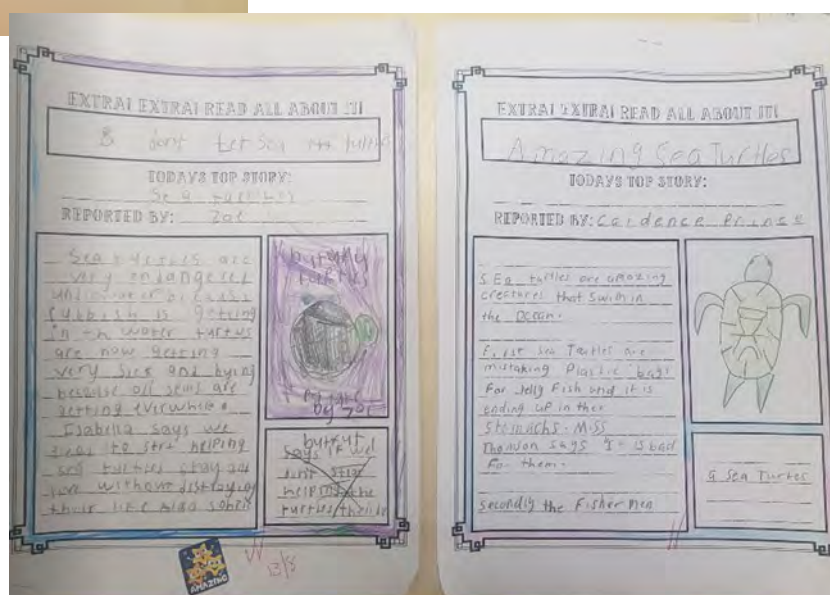 EXTRA! EXTRA! READ ALL ABOUT IT!
dont Let Sea turtles
TODAYS TOP STORY:
Sea turtles
REPORTED BY: Zoe
Sea turtles are
very endangered
underwater because
rubbish is getting
in the water turtus
are now getting
very sick and bying
because oil
are
getting
Isabella says we
to helping
sea turtles
without
their like also
turtles
by Zoe
says if we
dont
helping the
turtles
AMAZING
EXTRA! EXTRA! READ ALL ABOUT IT!
Amazing Sea Turtles
TODAYS TOP STORY:
REPORTED BY: Cardence Prince
SEa turtles are amazing
creatures that swim in
the Ocean.
First Sea Turtles are
mistaking Plastic bags
For Jelly Fish and it is
ending up in ther
Stomachs. Miss
says is bad
for them.
secondly the Fisher Men
a Sea Turtles